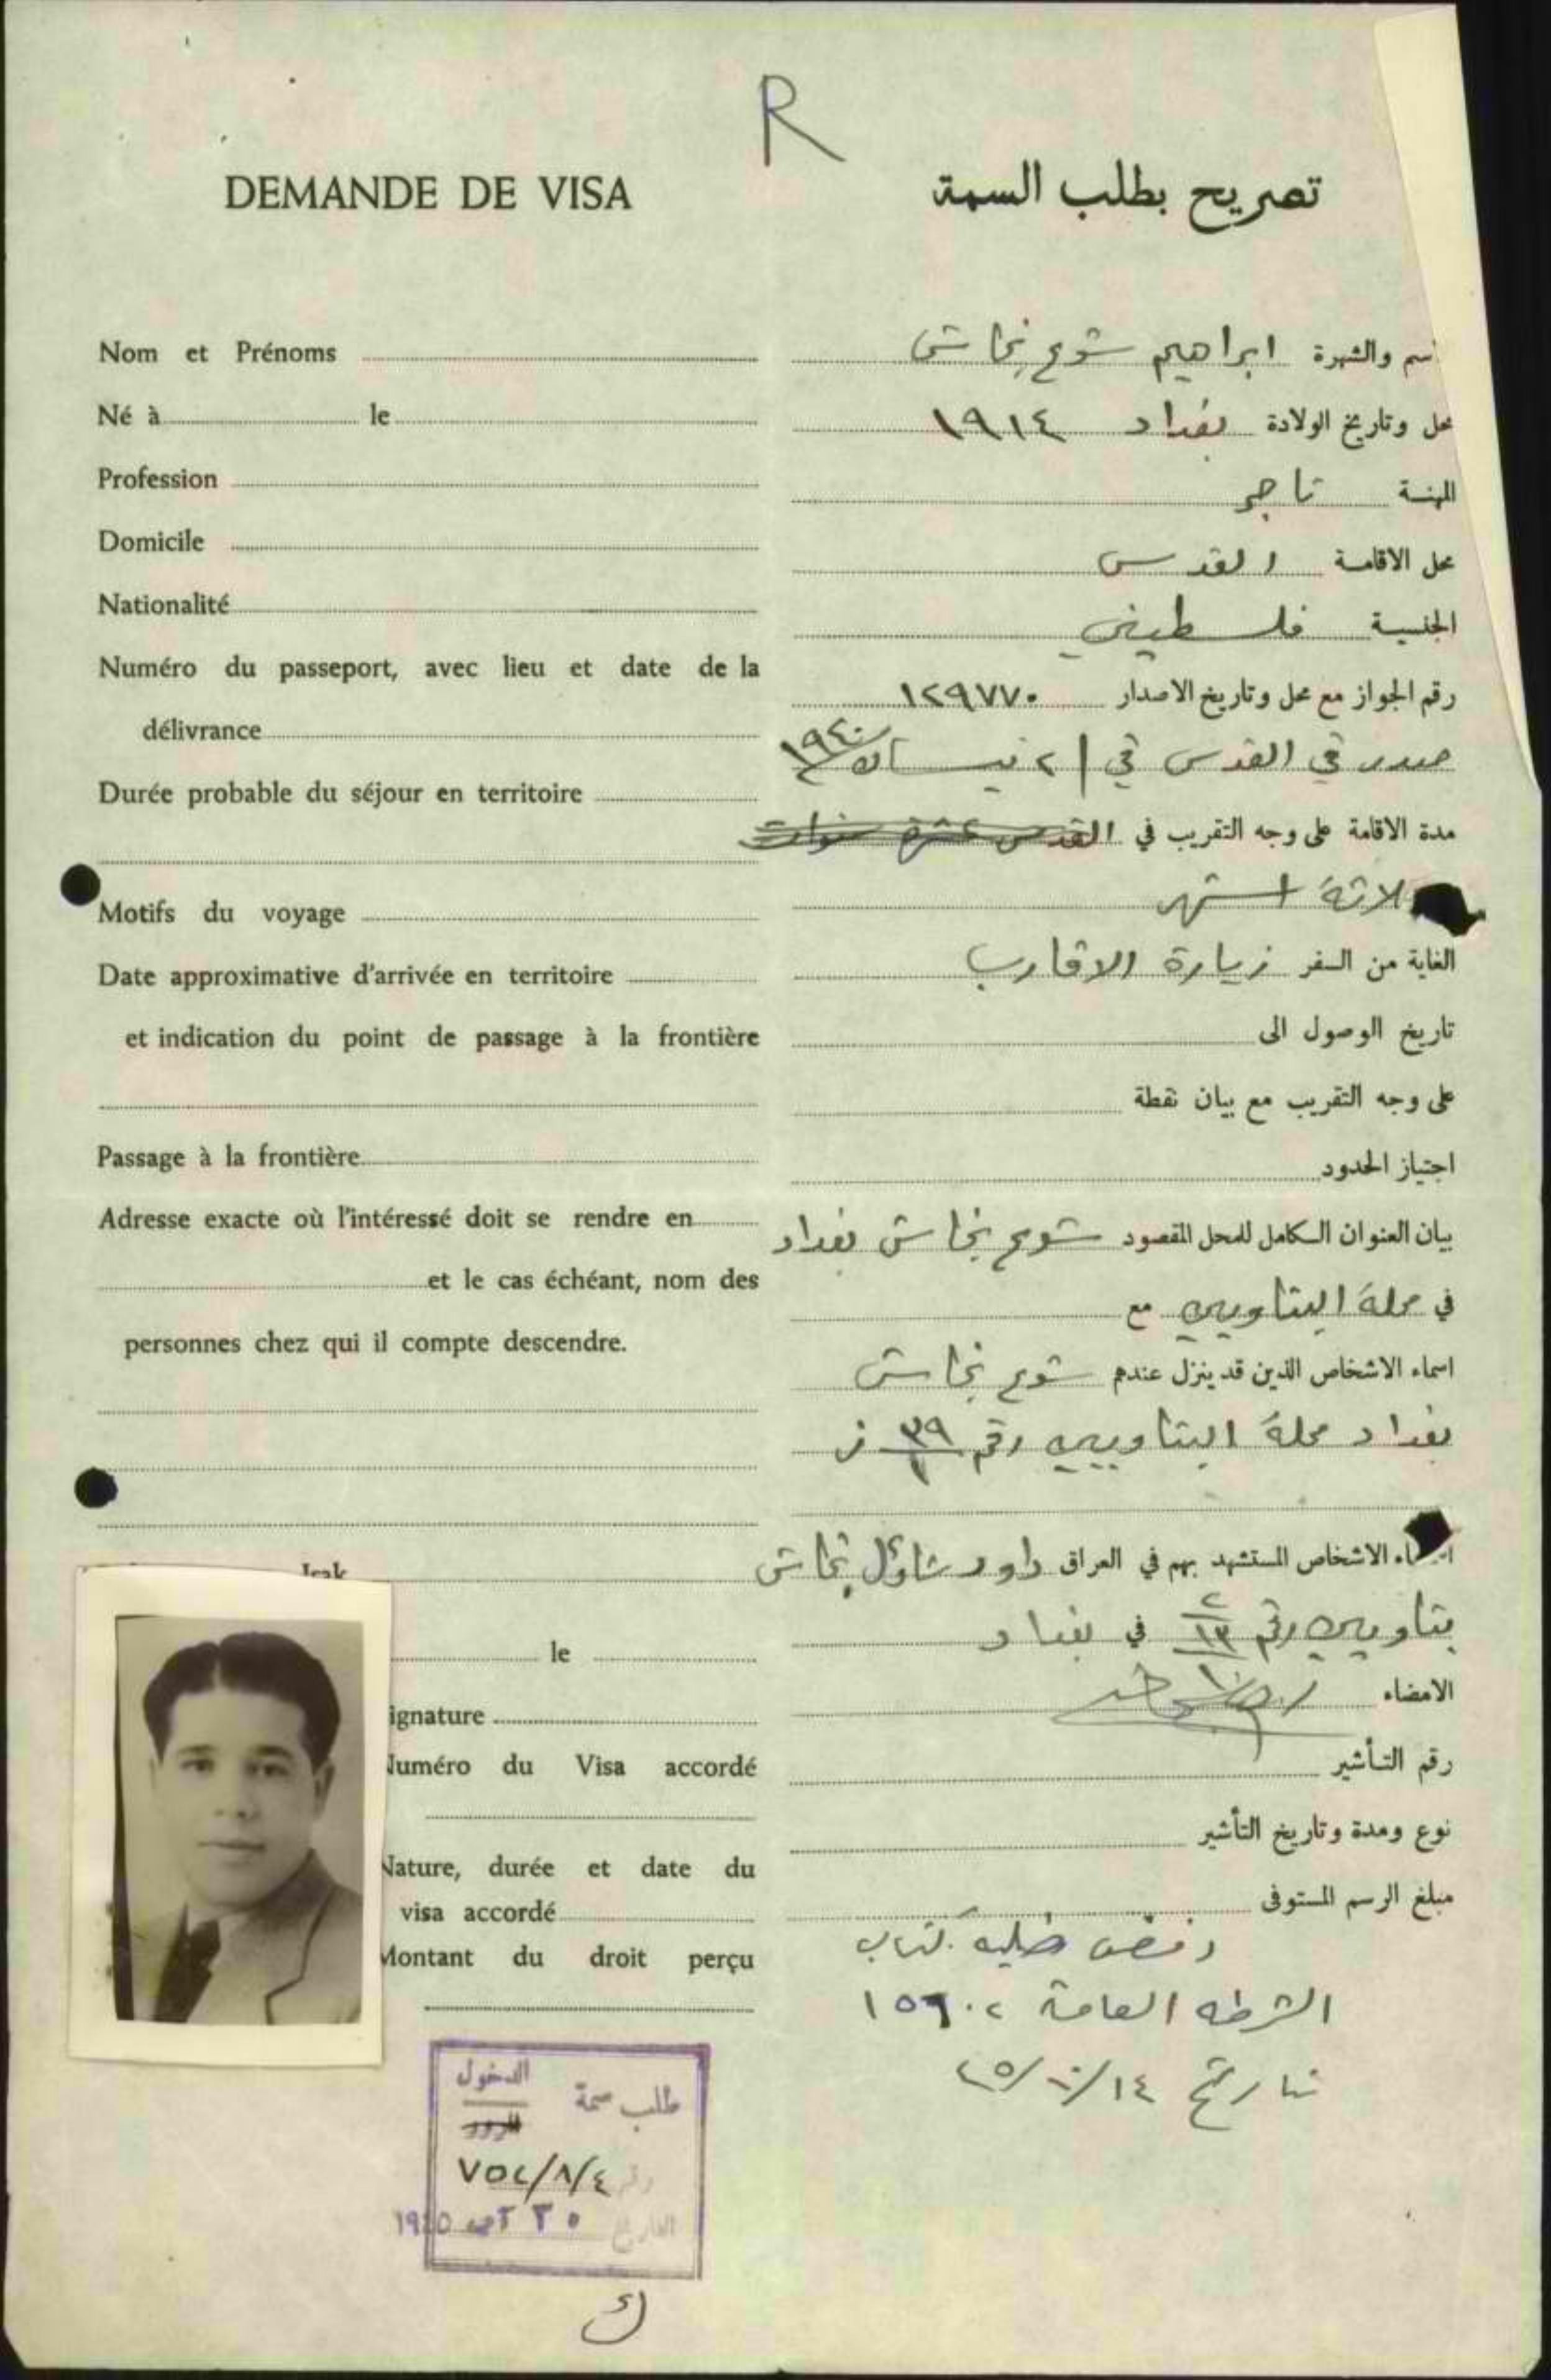 R
DEMANDE DE VISA
تصريح بطلب السمة
Nom et Prénoms
Né à le
Profession
Domicile
Nationalité
Numéro du passeport, avec lieu et date de la
délivrance
Durée probable du séjour en territoire
Motifs du voyage
Date approximative d'arrivée en territoire
et indication du point de passage à la frontière
Passage à la frontière
Adresse exacte où l'intéressé doit se rendre en
et le cas échéant, nom des
personnes chez qui il compte descendre.
Irak
le
ignature
uméro du Visa accordé
Nature, durée et date du
visa accordé
Montant du droit perçu
سم والشهرة ابراهيم شوع
محل وتاريخ الولادة بغداد ١٩١٤
المهنة تاجر
محل الاقامة القدس
الجنسية فلسطيني
رقم الجواز مع محل وتاريخ الاصدار ١٢٩٧٧٠
صدر في القدس في ٢ نيسان ١٩٤٠
مدة الاقامة على وجه التقريب في القدس عشرة سنوات
لاثة اشهر
الغاية من السفر زيارة الاقارب
تاريخ الوصول الى
على وجه التقريب مع بيان نقطة
اجتياز الحدود
بيان العنوان الكامل للمحل المقصود شوع بغداد
في محلة البتاويين مع
اسماء الاشخاص الذين قد ينزل عندهم شوع
بغداد محلة البتاويين رقم ٣٩/١
اء الاشخاص المستشهد بهم في العراق داود شاؤل
بتاويين رقم ٢/١٣ في بغداد
الامضاء
رقم التأشير
نوع ومدة وتاريخ التأشير
مبلغ الرسم المستوفى
رفض طلبه بكتاب
الشرطه العامة ١٥٦٠٢
تاريخ ١٤/١٠/٤٥
طلب سمة الدخول
المرور
رقم ٧٥٤/٨/٤
التاريخ ٢٠ آب ١٩٤٥